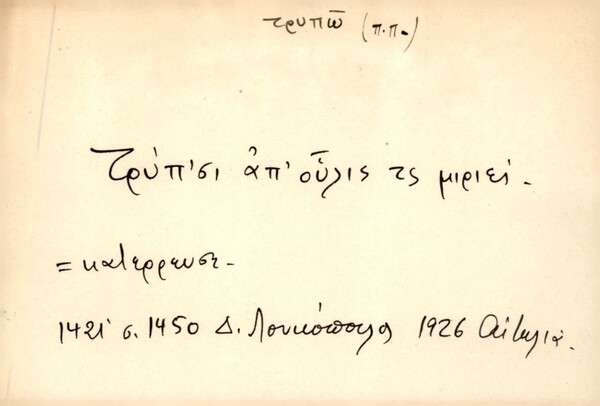 τρυπῶ (π.π.)
Τρύπ'σι ἀπ' οὗλις τς μιριές.
= κατέρρευσε.
1421 σ. 1450 Δ. Λουκόπουλος 1926 Αἰτωλία.